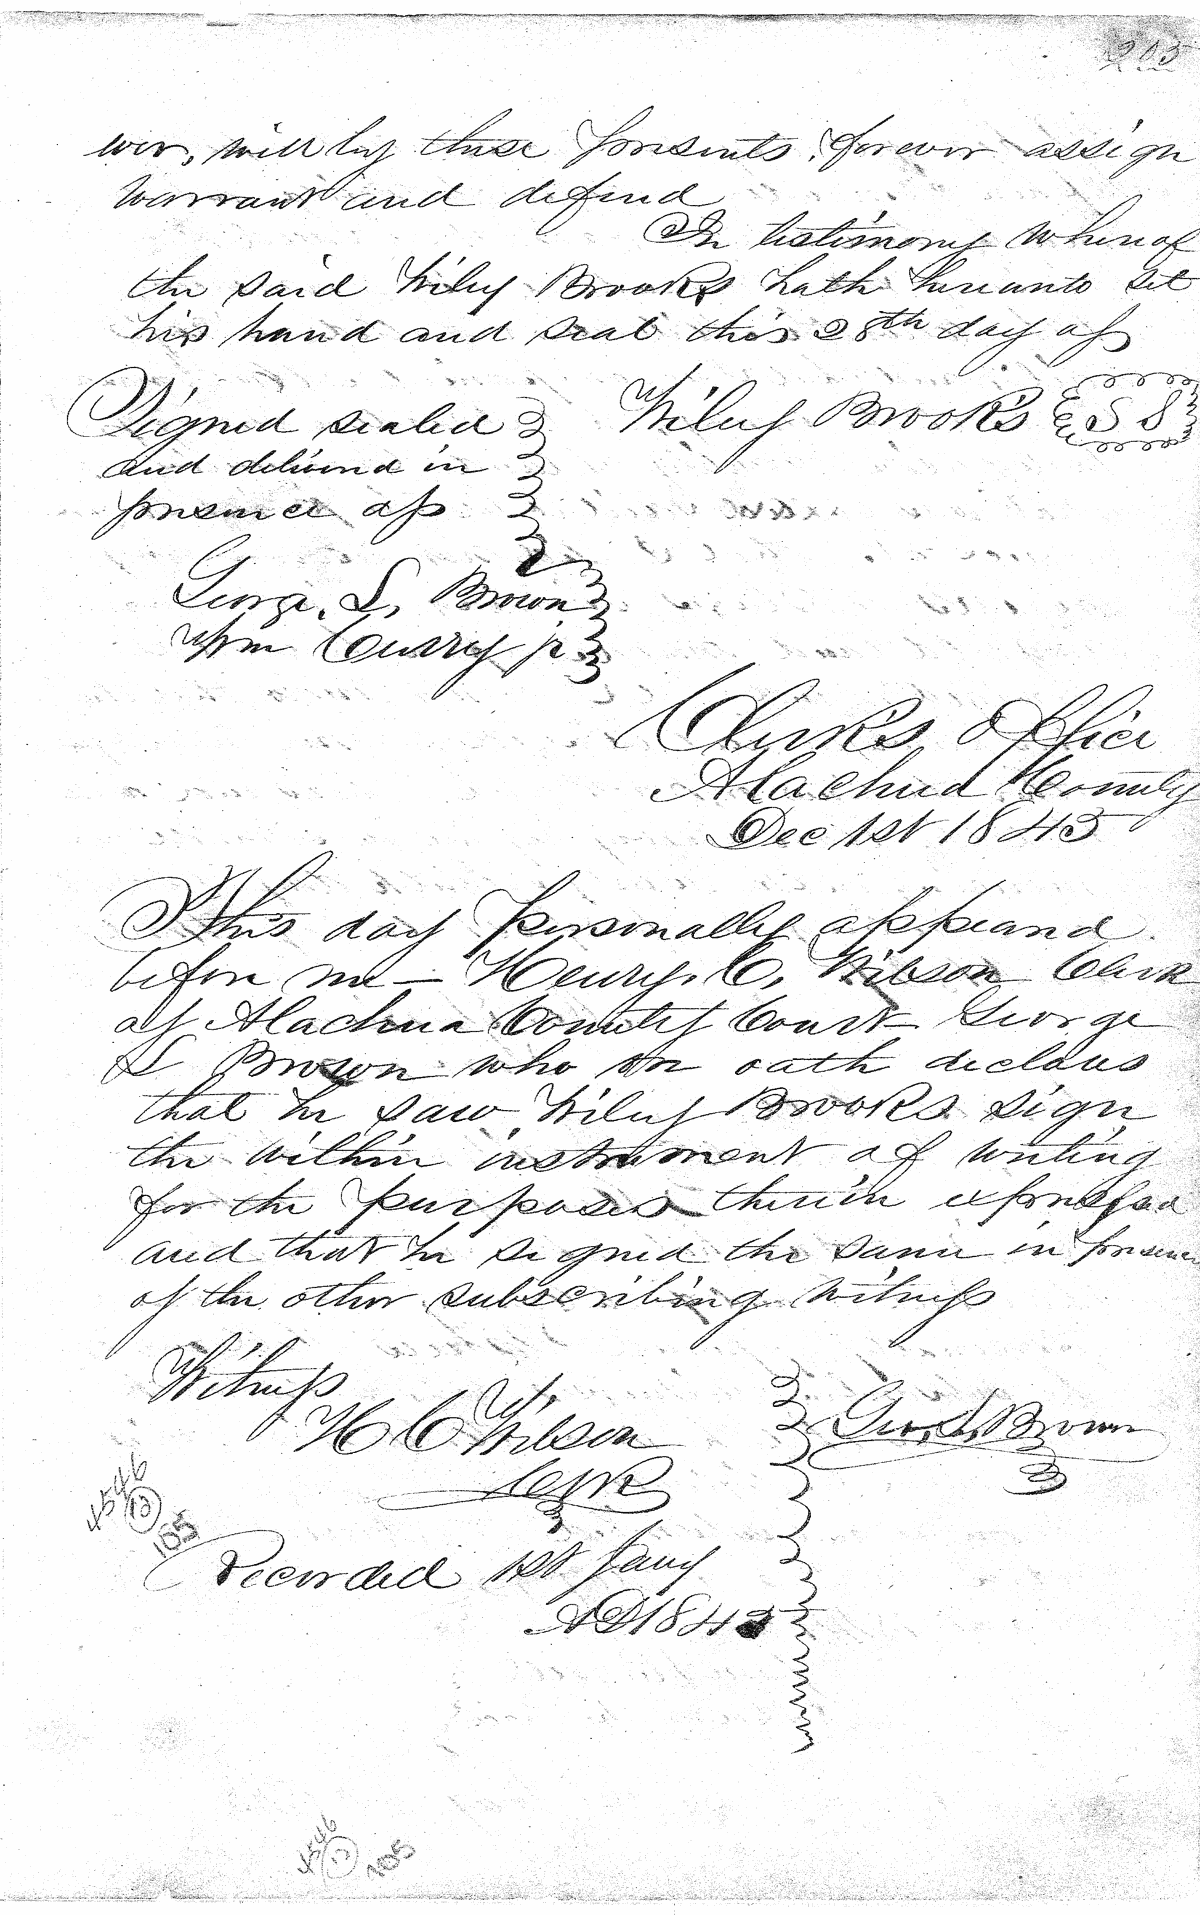 203
ever, will by these presents, forever assign
warrant and defend
In testimony whereof
the said Wiley Brooks hath hereunto set
his hand and seal this 28th day of
Signed sealed
and delivered in
presence of
Wiley Brooks S S
George. L, Brown
Wm Curry jr
Clerk's Office
Alachua County
Dec 1st 1845
This day personally appeared
before me — Henry. C, Wilson Clerk
of Alachua County Court George
L Brown who on oath declares
that he saw Wiley Brooks sign
the within instrument of writing
for the purposes therein expressed
and that he signed the same in presence
of the other subscribing witness
Witness
H C Wilson
Clerk
Geo. L. Brown
4546
13
105
Recorded 1st Jany
AD 184
4546
13
105